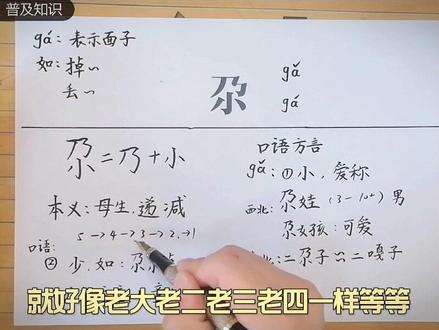 普及知识
gá：表示面子
如：掉〃
丢〃
尕
gǎ
gá
尕＝乃＋小
本义：母生，递减
5→4→3→2→1
口语：
② 少，如：尕
口语方言
gǎ：① 小，爱称
西北：尕娃（3－10+）男
尕女孩：可爱
北：二尕子 二嘎子
就好像老大老二老三老四一样等等